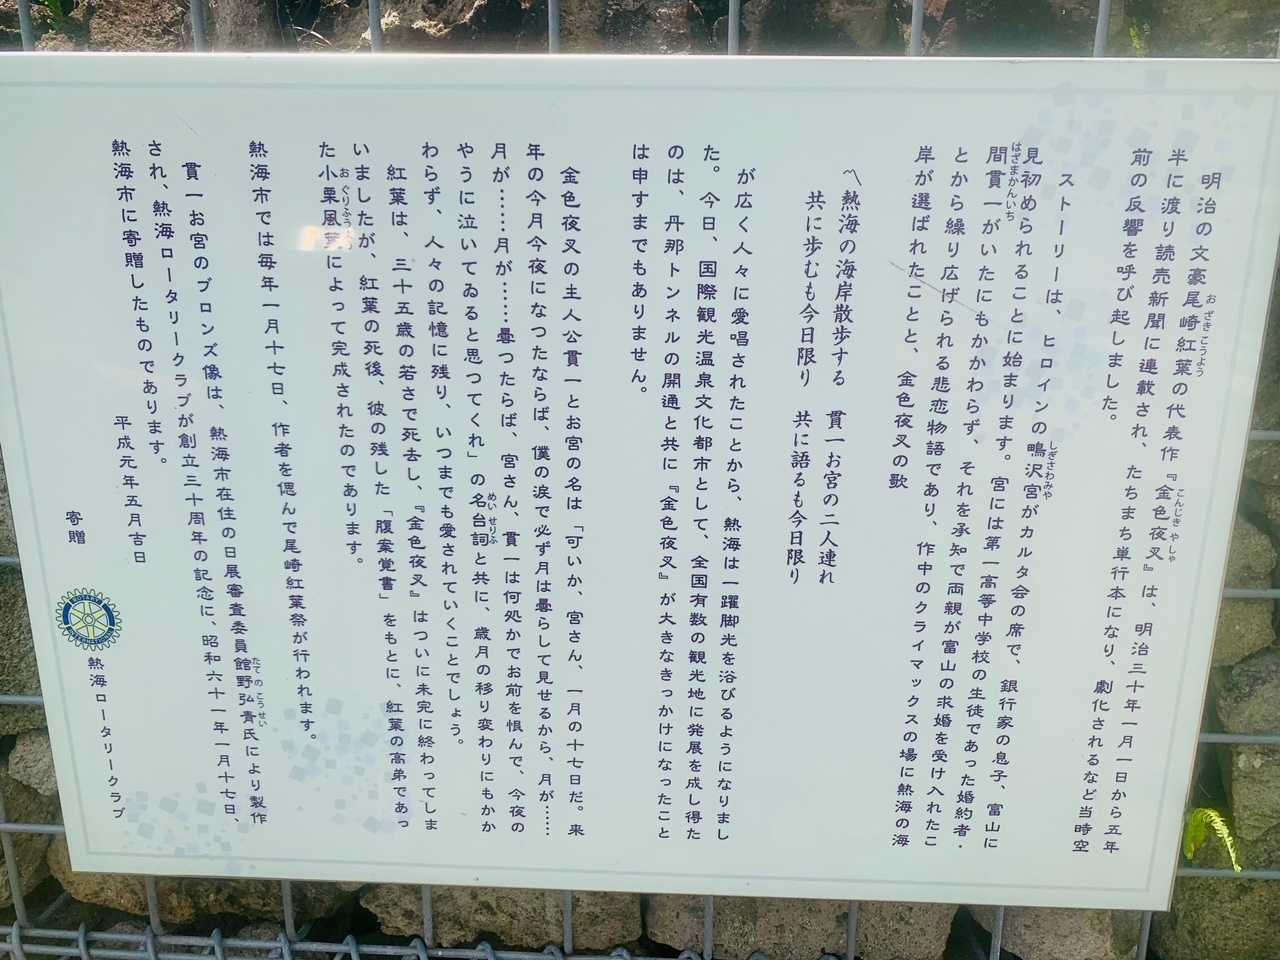 明治の文豪尾崎紅葉の代表作『金色夜叉』は、明治三十年一月一日から五年
おざきこうよう
こんじきやしゃ
半に渡り読売新聞に連載され、たちまち単行本になり、劇化されるなど当時空
前の反響を呼び起しました。
ストーリーは、ヒロインの鴫沢宮がカルタ会の席で、銀行家の息子、富山に
しぎさわみや
見初められることに始まります。宮には第一高等中学校の生徒であった婚約者・
間貫一がいたにもかかわらず、それを承知で両親が富山の求婚を受け入れたこ
はざまかんいち
とから繰り広げられる悲恋物語であり、作中のクライマックスの場に熱海の海
岸が選ばれたことと、金色夜叉の歌
〽熱海の海岸散歩する 貫一お宮の二人連れ
共に歩むも今日限り 共に語るも今日限り
が広く人々に愛唱されたことから、熱海は一躍脚光を浴びるようになりまし
た。今日、国際観光温泉文化都市として、全国有数の観光地に発展を成し得た
のは、丹那トンネルの開通と共に『金色夜叉』が大きなきっかけになったこと
は申すまでもありません。
金色夜叉の主人公貫一とお宮の名は「可いか、宮さん、一月の十七日だ。来
年の今月今夜になつたならば、僕の涙で必ず月は曇らして見せるから、月が……
月が……月が……曇つたらば、宮さん、貫一は何処かでお前を恨んで、今夜の
やうに泣いてゐると思つてくれ」の名台詞と共に、歳月の移り変わりにもかか
めいせりふ
わらず、人々の記憶に残り、いつまでも愛されていくことでしょう。
紅葉は、三十五歳の若さで死去し、『金色夜叉』はついに未完に終わってしま
いましたが、紅葉の死後、彼の残した「腹案覚書」をもとに、紅葉の高弟であっ
た小栗風葉によって完成されたのであります。
おぐりふう
熱海市では毎年一月十七日、作者を偲んで尾崎紅葉祭が行われます。
貫一お宮のブロンズ像は、熱海市在住の日展審査委員館野弘青氏により製作
たてのこうせい
され、熱海ロータリークラブが創立三十周年の記念に、昭和六十一年一月十七日、
熱海市に寄贈したものであります。
平成元年五月吉日
寄贈 熱海ロータリークラブ
ROTARY INTERNATIONAL